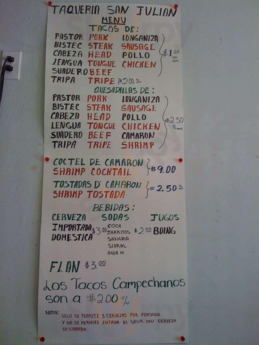 TAQUERIA SAN JULIAN
MENU
TACOS DE:
PASTOR PORK LONGANIZA
BISTEC STEAK SAUSAGE
CABEZA HEAD POLLO
LENGUA TONGUE CHICKEN
SUADERO BEEF
TRIPA TRIPE
QUESADILLAS DE:
PASTOR PORK LONGANIZA
BISTEC STEAK SAUSAGE
CABEZA HEAD POLLO
LENGUA TONGUE CHICKEN
SUADERO BEEF CAMARON
TRIPA TRIPE SHRIMP
$2.50
COCTEL DE CAMARON
SHRIMP COCKTAIL $9.00
TOSTADAS D' CAMARON
SHRIMP TOSTADA 2.50
BEBIDAS:
CERVEZA SODAS JUGOS
IMPORTADA COCA BOING
DOMESTICA $3 JARRITOS $2
SANGRIA
SIDRAL
FLAN $3.00
Los Tacos Campechanos
son a $2.00
NOTA: SOLO SE PERMITE 3 CERVEZAS POR PERSONA
Y NO SE PERMITE